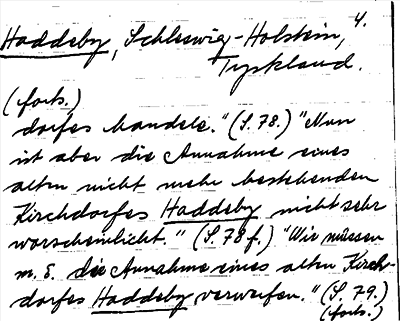 4.
Haddeby, Schleswig-Holstein,
Tyskland.
(forts.)
dorfes handele." (S. 78.) "Nun
ist aber die Annahme eines
alten nicht mehr bestehenden
Kirchdorfes Haddeby nicht sehr
warscheinlicht." (S. 78 f.) "Wir müssen
m. E. die Annahme eines alten Kirch-
dorfes Haddeby verwerfen." (S. 79.)
(forts.)